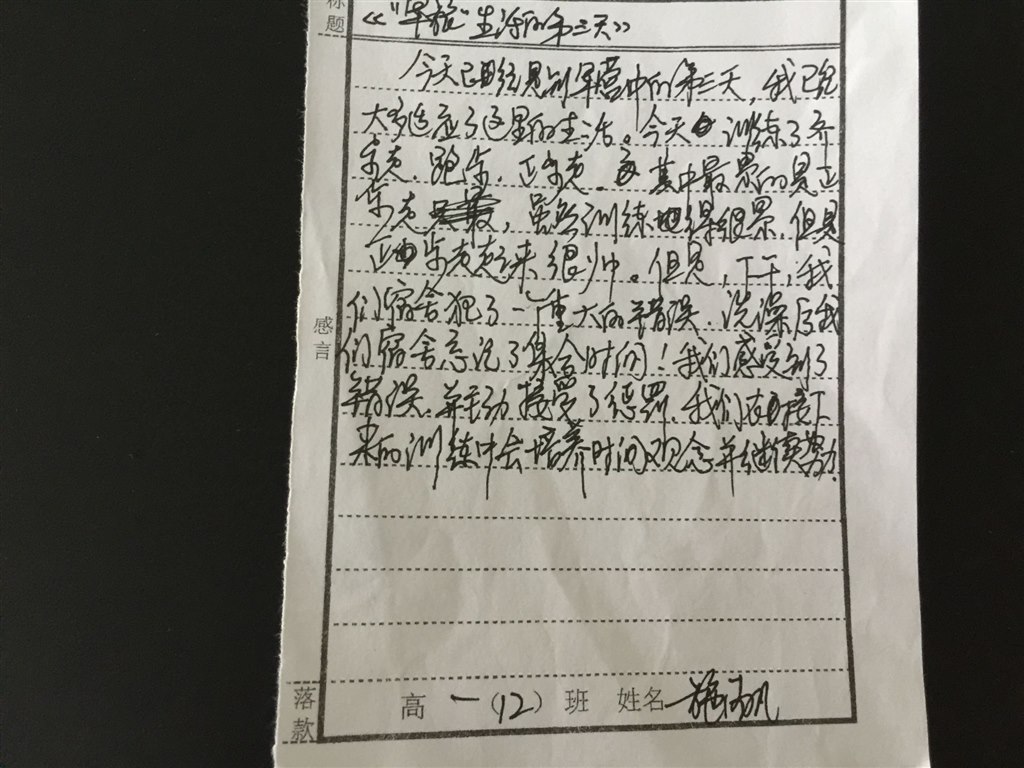 标题
《"军旅"生活的第三天》
今天已经是到军营中的第三天,我已经
大多适应了这里的生活。今天训练了齐
步走、跑步、正步走,其中最累的是正
步走,虽然训练地得很累,但是
正步走走起来很帅。但是,下午,我
们宿舍犯了一重大的错误,洗澡后我
们宿舍忘记了集合时间!我们感受到了
错误,并主动接受了惩罚,我们在接下
来的训练中会培养时间观念并继续努力.
感言
落款
高一(12)班 姓名